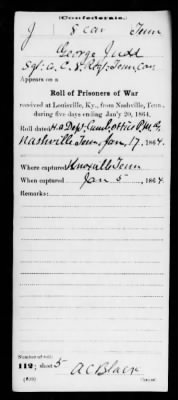 (Confederate.)
J 8 Cav Tenn
George Judd
Sgt. Co. C. 8. Regt. Tenn. Cav.
Appears on a
Roll of Prisoners of War
received at Louisville, Ky., from Nashville, Tenn.,
during five days ending Jan'y 20, 1864.
Roll dated H.Q. Dept. Cumb. office P.M.G.
Nashville Tenn. Jan. 17, 1864.
Where captured Knoxville Tenn
When captured Jan 5, 1864.
Remarks:
Number of roll:
112; sheet 5 A C Black